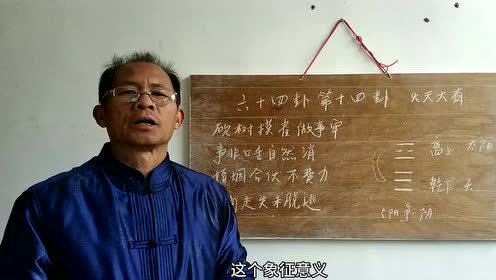 六十四卦 第十四卦 火天大有
砍树摸雀做事牢
事非口舌自然消
婚姻合伙不费力
走失未脱逃
离上 太阳
乾下 天
5阳 一阴
这个象征意义